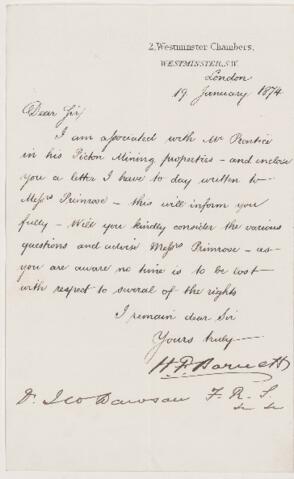 2, Westminster Chambers,
WESTMINSTER, S.W.
London
19 January 1874
Dear Sir
I am associated with Mr Prentice
in his Picton Mining properties – and enclose
you a letter I have to day written to
Messrs Primrose – this will inform you
fully – Will you kindly consider the various
questions and advise Messrs Primrose – as
you are aware no time is to be lost –
with respect to several of the rights
I remain dear Sir
Yours truly –
H. F. Barnett
Dr. Dawson F. R. S.